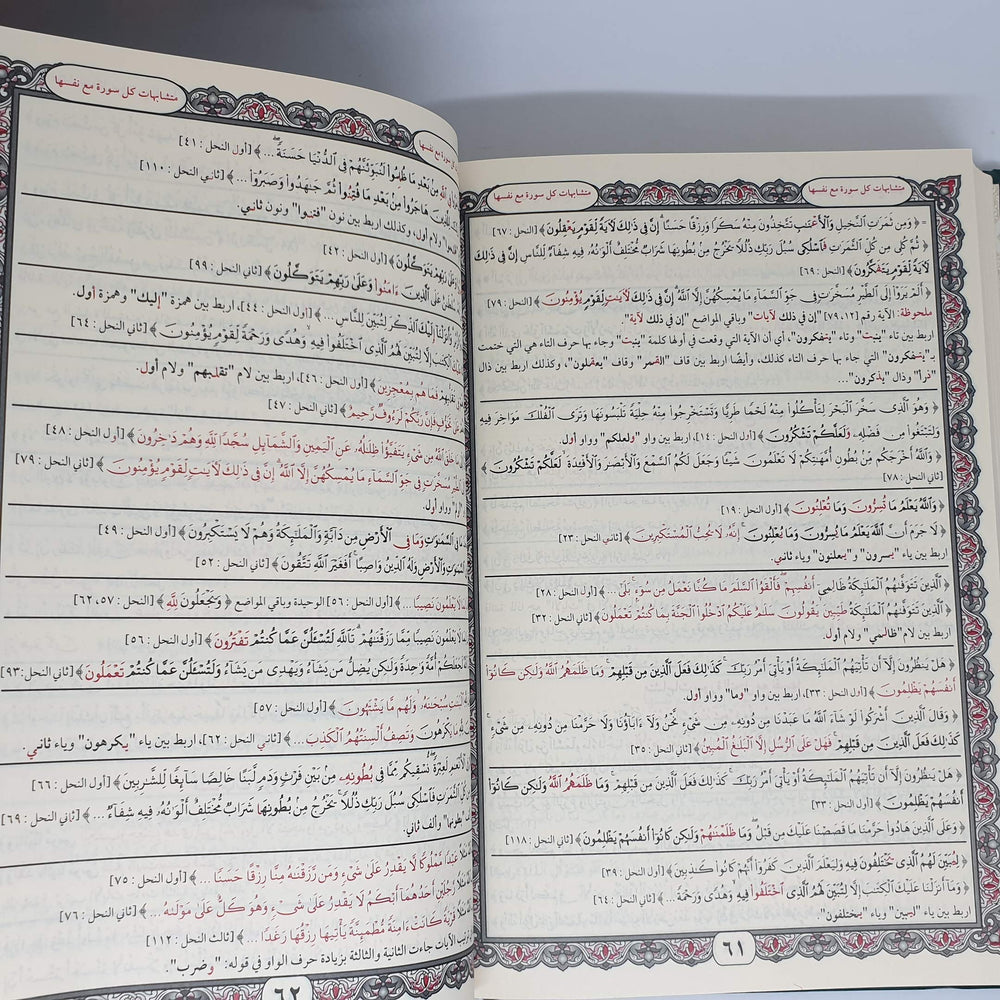 متشابهات كل سورة مع نفسها
متشابهات كل سورة مع نفسها
﴿ وَمِن ثَمَرَٰتِ ٱلنَّخِيلِ وَٱلْأَعْنَٰبِ تَتَّخِذُونَ مِنْهُ سَكَرًا وَرِزْقًا حَسَنًا إِنَّ فِى ذَٰلِكَ لَآيَةً لِّقَوْمٍ يَعْقِلُونَ ﴾ [النحل: ٦٧]
﴿ ثُمَّ كُلِى مِن كُلِّ ٱلثَّمَرَٰتِ فَٱسْلُكِى سُبُلَ رَبِّكِ ذُلُلًا يَخْرُجُ مِنۢ بُطُونِهَا شَرَابٌ مُّخْتَلِفٌ أَلْوَٰنُهُۥ فِيهِ شِفَآءٌ لِّلنَّاسِ إِنَّ فِى ذَٰلِكَ
لَآيَةً لِّقَوْمٍ يَتَفَكَّرُونَ ﴾ [النحل: ٦٩]
﴿ أَلَمْ يَرَوْا۟ إِلَى ٱلطَّيْرِ مُسَخَّرَٰتٍ فِى جَوِّ ٱلسَّمَآءِ مَا يُمْسِكُهُنَّ إِلَّا ٱللَّهُ إِنَّ فِى ذَٰلِكَ لَآيَٰتٍ لِّقَوْمٍ يُؤْمِنُونَ ﴾ [النحل: ٧٩]
ملحوظة: الآية [١٢، ٧٩] "إن في ذلك لآيات" وباقي المواضع "إن في ذلك لآية"
اربط بين ثاء "ينبت" وتاء "يتفكرون"، أي أن الآية التي وقعت في أولها كلمة "ينبت" وجاء بها حرف التاء هي التي ختمت
بـ"يتفكرون" التي جاء بها حرف التاء كذلك، وأيضًا اربط بين قاف "القمر" وقاف "يعقلون"، وكذلك اربط بين ذال
"ذرأ" وذال "يذكرون"...
﴿ وَهُوَ ٱلَّذِى سَخَّرَ ٱلْبَحْرَ لِتَأْكُلُوا۟ مِنْهُ لَحْمًا طَرِيًّا وَتَسْتَخْرِجُوا۟ مِنْهُ حِلْيَةً تَلْبَسُونَهَا وَتَرَى ٱلْفُلْكَ مَوَاخِرَ فِيهِ
وَلِتَبْتَغُوا۟ مِن فَضْلِهِۦ وَلَعَلَّكُمْ تَشْكُرُونَ ﴾ [أول النحل: ١٤]، اربط بين واو "ولعلكم" وواو أول.
﴿ وَٱللَّهُ أَخْرَجَكُم مِّنۢ بُطُونِ أُمَّهَٰتِكُمْ لَا تَعْلَمُونَ شَيْـًٔا وَجَعَلَ لَكُمُ ٱلسَّمْعَ وَٱلْأَبْصَٰرَ وَٱلْأَفْـِٔدَةَ لَعَلَّكُمْ تَشْكُرُونَ ﴾
[ثاني النحل: ٧٨]
﴿ وَٱللَّهُ يَعْلَمُ مَا تُسِرُّونَ وَمَا تُعْلِنُونَ ﴾ [أول النحل: ١٩]
﴿ لَا جَرَمَ أَنَّ ٱللَّهَ يَعْلَمُ مَا يُسِرُّونَ وَمَا يُعْلِنُونَ إِنَّهُۥ لَا يُحِبُّ ٱلْمُسْتَكْبِرِينَ ﴾ [ثاني النحل: ٢٣]
اربط بين ياء "يسرون" و "يعلنون" وياء ثاني.
﴿ ٱلَّذِينَ تَتَوَفَّىٰهُمُ ٱلْمَلَٰٓئِكَةُ ظَالِمِىٓ أَنفُسِهِمْ فَأَلْقَوُا۟ ٱلسَّلَمَ مَا كُنَّا نَعْمَلُ مِن سُوٓءٍ بَلَىٰٓ ... ﴾ [أول النحل: ٢٨]
﴿ ٱلَّذِينَ تَتَوَفَّىٰهُمُ ٱلْمَلَٰٓئِكَةُ طَيِّبِينَ يَقُولُونَ سَلَٰمٌ عَلَيْكُمُ ٱدْخُلُوا۟ ٱلْجَنَّةَ بِمَا كُنتُمْ تَعْمَلُونَ ﴾ [ثاني النحل: ٣٢]
اربط بين لام "ظالمي" ولام أول.
﴿ هَلْ يَنظُرُونَ إِلَّآ أَن تَأْتِيَهُمُ ٱلْمَلَٰٓئِكَةُ أَوْ يَأْتِىَ أَمْرُ رَبِّكَ كَذَٰلِكَ فَعَلَ ٱلَّذِينَ مِن قَبْلِهِمْ وَمَا ظَلَمَهُمُ ٱللَّهُ وَلَٰكِن كَانُوٓا۟
أَنفُسَهُمْ يَظْلِمُونَ ﴾ [أول النحل: ٣٣]، اربط بين واو "وما" وواو أول.
﴿ وَقَالَ ٱلَّذِينَ أَشْرَكُوا۟ لَوْ شَآءَ ٱللَّهُ مَا عَبَدْنَا مِن دُونِهِۦ مِن شَىْءٍ نَّحْنُ وَلَآ ءَابَآؤُنَا وَلَا حَرَّمْنَا مِن دُونِهِۦ مِن شَىْءٍ
كَذَٰلِكَ فَعَلَ ٱلَّذِينَ مِن قَبْلِهِمْ فَهَلْ عَلَى ٱلرُّسُلِ إِلَّا ٱلْبَلَٰغُ ٱلْمُبِينُ ﴾ [ثاني النحل: ٣٥]
﴿ هَلْ يَنظُرُونَ إِلَّآ أَن تَأْتِيَهُمُ ٱلْمَلَٰٓئِكَةُ أَوْ يَأْتِىَ أَمْرُ رَبِّكَ كَذَٰلِكَ فَعَلَ ٱلَّذِينَ مِن قَبْلِهِمْ وَمَا ظَلَمَهُمُ ٱللَّهُ وَلَٰكِن كَانُوٓا۟
أَنفُسَهُمْ يَظْلِمُونَ ﴾ [أول النحل: ٣٣]
﴿ وَعَلَى ٱلَّذِينَ هَادُوا۟ حَرَّمْنَا مَا قَصَصْنَا عَلَيْكَ مِن قَبْلُ وَمَا ظَلَمْنَٰهُمْ وَلَٰكِن كَانُوٓا۟ أَنفُسَهُمْ يَظْلِمُونَ ﴾ [ثاني النحل: ١١٨]
﴿ لِيُبَيِّنَ لَهُمُ ٱلَّذِى يَخْتَلِفُونَ فِيهِ وَلِيَعْلَمَ ٱلَّذِينَ كَفَرُوٓا۟ أَنَّهُمْ كَانُوا۟ كَٰذِبِينَ ﴾ [أول النحل: ٣٩]
﴿ وَمَآ أَنزَلْنَا عَلَيْكَ ٱلْكِتَٰبَ إِلَّا لِتُبَيِّنَ لَهُمُ ٱلَّذِى ٱخْتَلَفُوا۟ فِيهِ وَهُدًى وَرَحْمَةً ... ﴾ [ثاني النحل: ٦٤]
اربط بين ياء "ليبين" وياء "يختلفون".
٦١
متشابهات كل سورة مع نفسها
كل سورة مع نفسها
ٱللَّهِ مِنۢ بَعْدِ مَا ظُلِمُوا۟ لَنُبَوِّئَنَّهُمْ فِى ٱلدُّنْيَا حَسَنَةً ... ﴾ [أول النحل: ٤١]
لِلَّذِينَ هَاجَرُوا۟ مِنۢ بَعْدِ مَا فُتِنُوا۟ ثُمَّ جَٰهَدُوا۟ وَصَبَرُوٓا۟ ... ﴾ [ثاني النحل: ١١٠]
ولام أول، وكذلك اربط بين نون "فتنوا" ونون ثاني.
وَعَلَىٰ رَبِّهِمْ يَتَوَكَّلُونَ ﴾ [أول النحل: ٤٢]
عَلَى ٱلَّذِينَ ءَامَنُوا۟ وَعَلَىٰ رَبِّهِمْ يَتَوَكَّلُونَ ﴾ [ثاني النحل: ٩٩]
وَأَنزَلْنَآ إِلَيْكَ ٱلذِّكْرَ لِتُبَيِّنَ لِلنَّاسِ ... ﴾ [أول النحل: ٤٤]، اربط بين همزة "إليك" وهمزة أول.
ٱلْكِتَٰبَ إِلَّا لِتُبَيِّنَ لَهُمُ ٱلَّذِى ٱخْتَلَفُوا۟ فِيهِ وَهُدًى وَرَحْمَةً لِّقَوْمٍ يُؤْمِنُونَ ﴾ [ثاني النحل: ٦٤]
تَقَلُّبِهِمْ فَمَا هُم بِمُعْجِزِينَ ﴾ [أول النحل: ٤٦]، اربط بين لام "تقلبهم" ولام أول.
عَلَىٰ تَخَوُّفٍ فَإِنَّ رَبَّكُمْ لَرَءُوفٌ رَّحِيمٌ ﴾ [ثاني النحل: ٤٧]
خَلَقَ ٱللَّهُ مِن شَىْءٍ يَتَفَيَّؤُا۟ ظِلَٰلُهُۥ عَنِ ٱلْيَمِينِ وَٱلشَّمَآئِلِ سُجَّدًا لِّلَّهِ وَهُمْ دَٰخِرُونَ ﴾ [أول النحل: ٤٨]
ٱلطَّيْرِ مُسَخَّرَٰتٍ فِى جَوِّ ٱلسَّمَآءِ مَا يُمْسِكُهُنَّ إِلَّا ٱللَّهُ إِنَّ فِى ذَٰلِكَ لَآيَٰتٍ لِّقَوْمٍ يُؤْمِنُونَ ﴾ [ثاني النحل: ٧٩]
وواو أول.
ٱلسَّمَٰوَٰتِ وَمَا فِى ٱلْأَرْضِ مِن دَآبَّةٍ وَٱلْمَلَٰٓئِكَةُ وَهُمْ لَا يَسْتَكْبِرُونَ ﴾ [أول النحل: ٤٩]
ٱلسَّمَٰوَٰتِ وَٱلْأَرْضِ وَلَهُ ٱلدِّينُ وَاصِبًا أَفَغَيْرَ ٱللَّهِ تَتَّقُونَ ﴾ [ثاني النحل: ٥٢]
لِمَا لَا يَعْلَمُونَ نَصِيبًا ... ﴾ [أول النحل: ٥٦] الوحيدة وباقي المواضع ﴿ وَيَجْعَلُونَ لِلَّهِ ﴾ [النحل: ٥٧، ٦٢]
لِمَا لَا يَعْلَمُونَ نَصِيبًا مِّمَّا رَزَقْنَٰهُمْ تَٱللَّهِ لَتُسْـَٔلُنَّ عَمَّا كُنتُمْ تَفْتَرُونَ ﴾ [أول النحل: ٥٦]
لَجَعَلَكُمْ أُمَّةً وَٰحِدَةً وَلَٰكِن يُضِلُّ مَن يَشَآءُ وَيَهْدِى مَن يَشَآءُ وَلَتُسْـَٔلُنَّ عَمَّا كُنتُمْ تَعْمَلُونَ ﴾ [ثاني النحل: ٩٣]
ٱلْبَنَٰتِ سُبْحَٰنَهُۥ وَلَهُم مَّا يَشْتَهُونَ ﴾ [أول النحل: ٥٧]
مَا يَكْرَهُونَ وَتَصِفُ أَلْسِنَتُهُمُ ٱلْكَذِبَ ... ﴾ [ثاني النحل: ٦٢]، اربط بين ياء "يكرهون" وياء ثاني.
ٱلْأَنْعَٰمِ لَعِبْرَةً نُّسْقِيكُم مِّمَّا فِى بُطُونِهِۦ مِنۢ بَيْنِ فَرْثٍ وَدَمٍ لَّبَنًا خَالِصًا سَآئِغًا لِّلشَّٰرِبِينَ ﴾ [أول النحل: ٦٦]
كُلِّ ٱلثَّمَرَٰتِ فَٱسْلُكِى سُبُلَ رَبِّكِ ذُلُلًا يَخْرُجُ مِنۢ بُطُونِهَا شَرَابٌ مُّخْتَلِفٌ أَلْوَٰنُهُۥ فِيهِ شِفَآءٌ ... ﴾ [ثاني النحل: ٦٩]
"بطونها" وألف ثاني.
مَثَلًا عَبْدًا مَّمْلُوكًا لَّا يَقْدِرُ عَلَىٰ شَىْءٍ وَمَن رَّزَقْنَٰهُ مِنَّا رِزْقًا حَسَنًا ... ﴾ [أول النحل: ٧٥]
مَثَلًا رَّجُلَيْنِ أَحَدُهُمَآ أَبْكَمُ لَا يَقْدِرُ عَلَىٰ شَىْءٍ وَهُوَ كَلٌّ عَلَىٰ مَوْلَىٰهُ ... ﴾ [ثاني النحل: ٧٦]
مَثَلًا قَرْيَةً كَانَتْ ءَامِنَةً مُّطْمَئِنَّةً يَأْتِيهَا رِزْقُهَا رَغَدًا ... ﴾ [ثالث النحل: ١١٢]
ترتيب الآيات جاءت الثانية والثالثة بزيادة حرف الواو في قوله: "وضرب".
٦٢